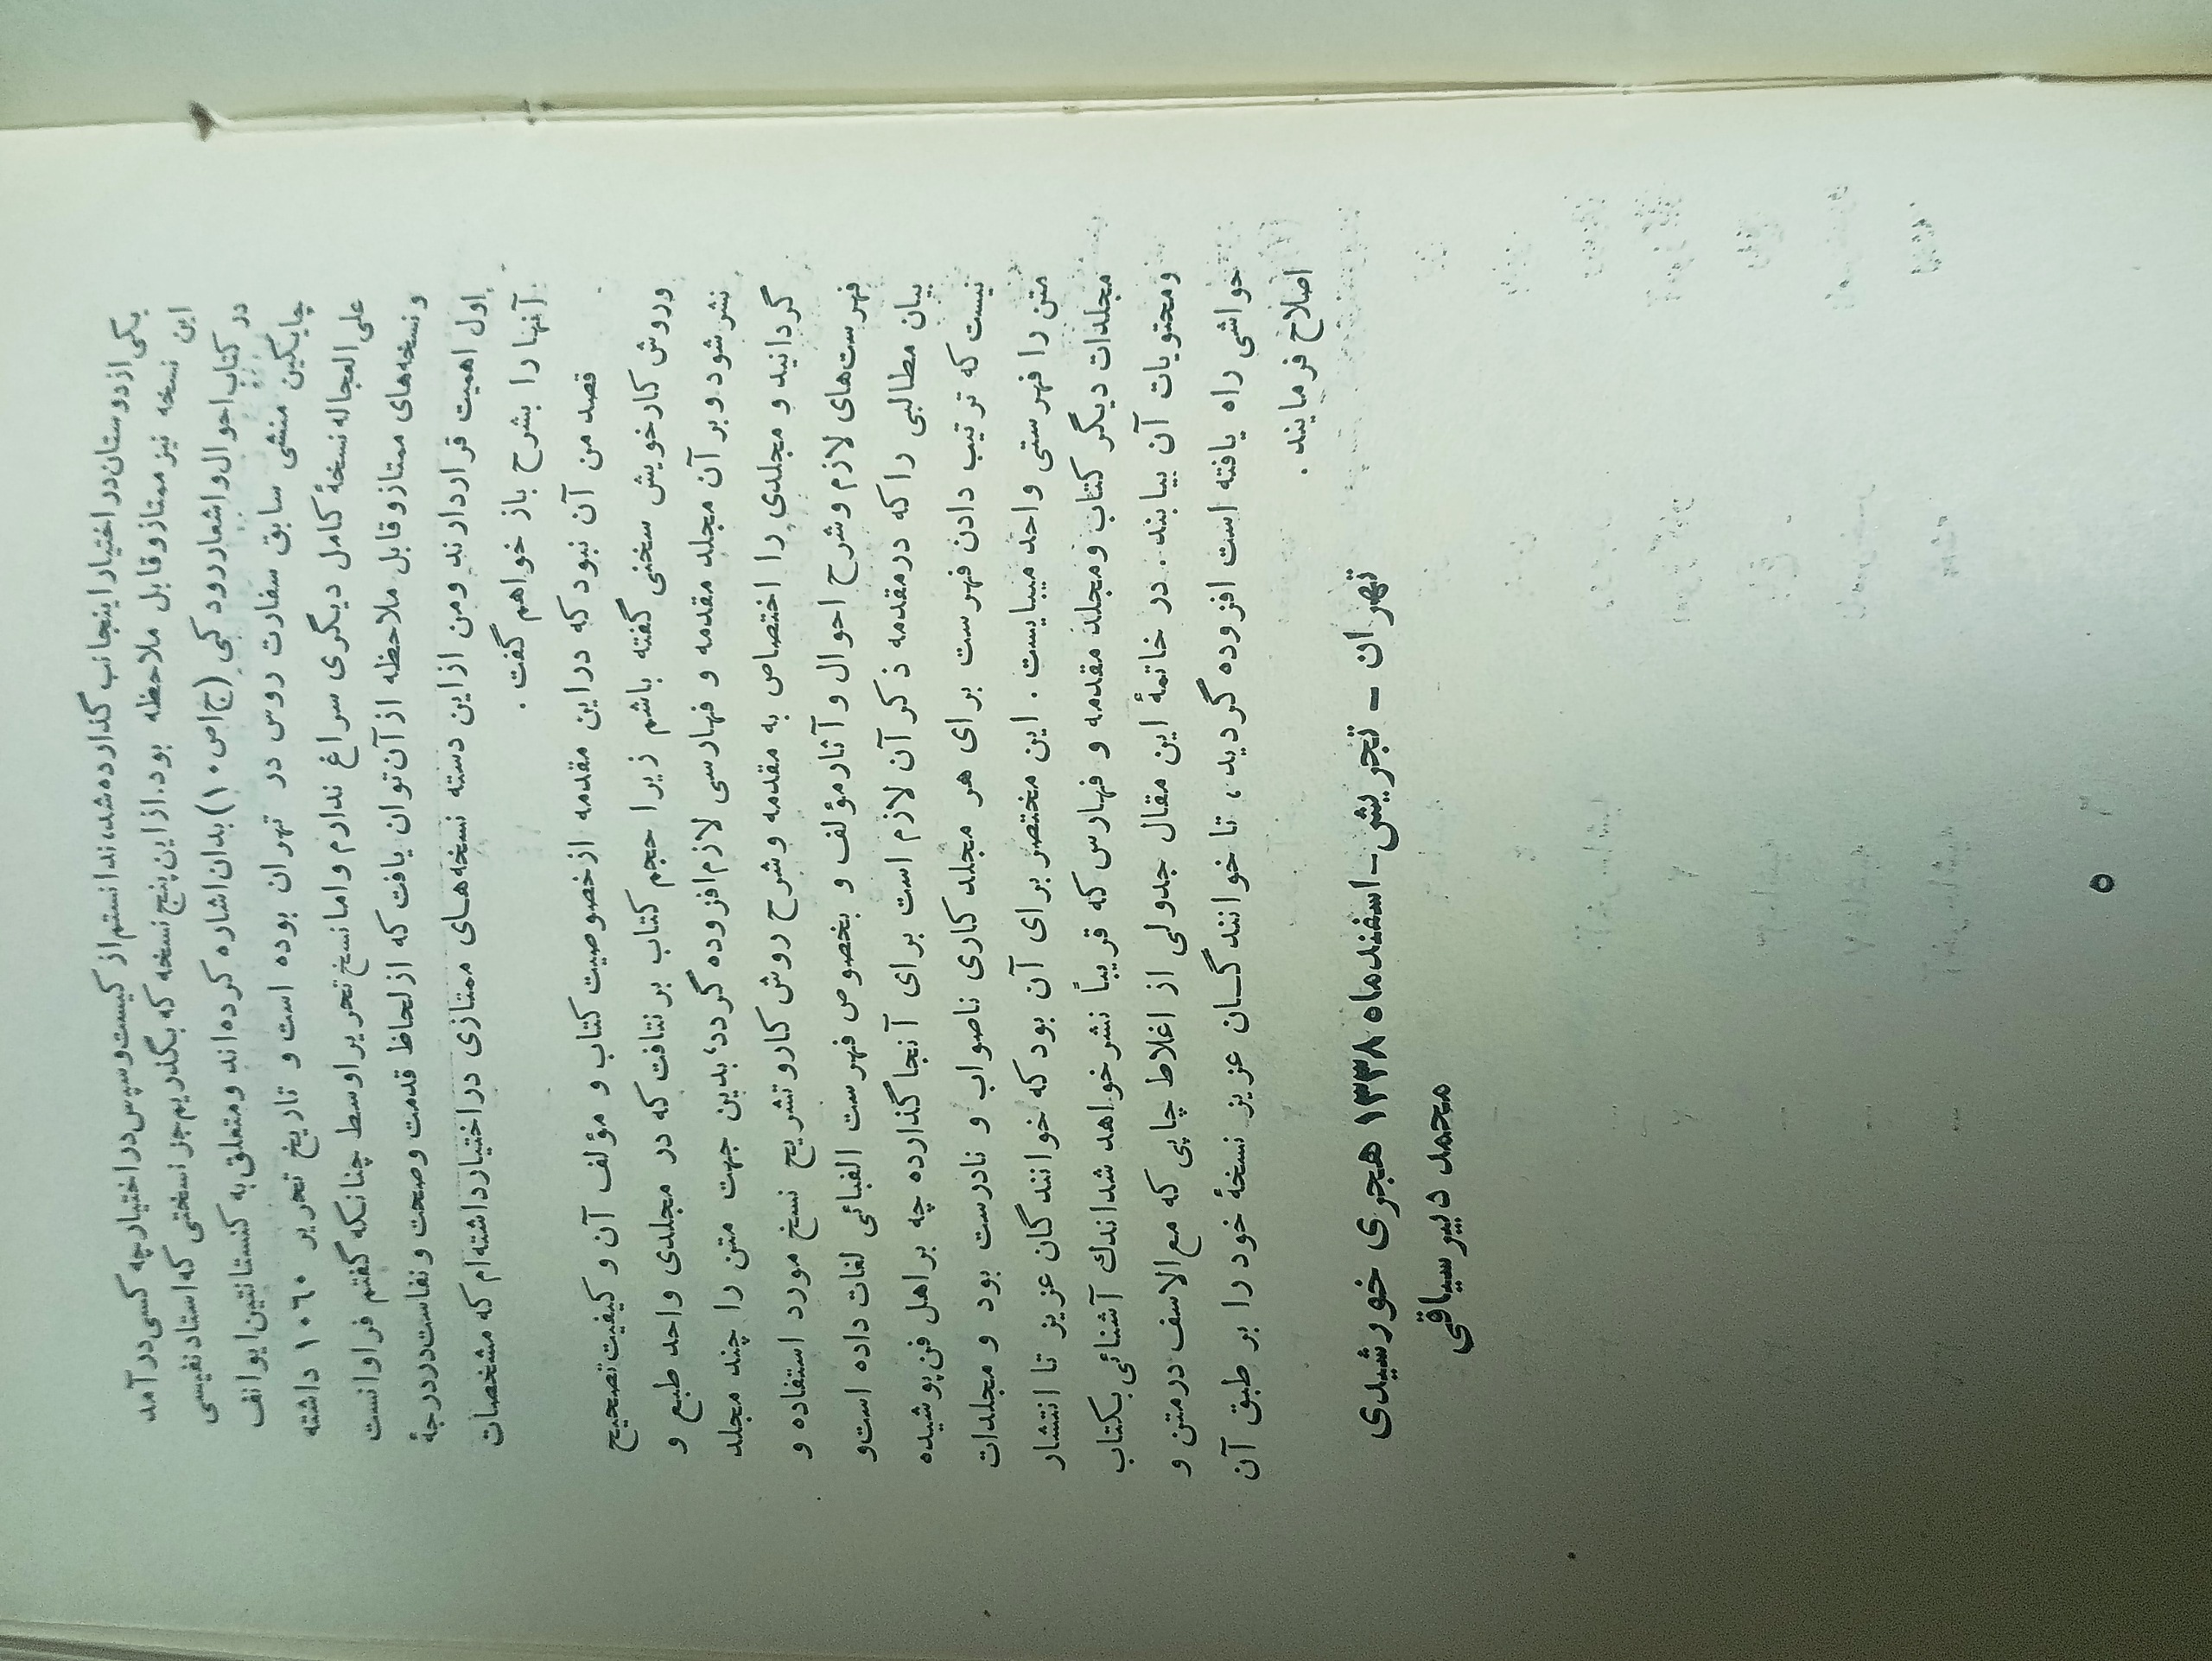 یکی از دوستان در اختیار اینجانب گذارده شد، ندانستم از کیست و سپس در اختیار چه کسی در آمد
این نسخه نیز ممتاز و قابل ملاحظه بود. از این پنج نسخه که بگذریم جز نسختی که استاد نفیسی
در کتاب احوال و اشعار رودکی (ج ۱ ص ۱۰) بدان اشاره کرده اند و متعلق به کنستانتین ایوانف
چایکین منشی سابق سفارت روس در تهران بوده است و تاریخ تحریر ۱۰۶۰ داشته
علی العجاله نسخهٔ کامل دیگری سراغ ندارم و اما نسخ تحریر اوسط چنانکه گفتم فراوانست
و نسخه‌های ممتاز و قابل ملاحظه از آن توان یافت که از لحاظ قدمت و صحت و نفاست در درجهٔ
اول اهمیت قرار دارند و من از این دسته نسخه‌های ممتازی در اختیار داشته‌ام که مشخصات
آنها را بشرح باز خواهم گفت.
قصد من آن نبود که در این مقدمه از خصوصیت کتاب و مؤلف آن و کیفیت تصحیح
و روش کار خویش سخنی گفته باشم زیرا حجم کتاب بر نتافت که در مجلدی واحد طبع و
نشر شود و بر آن مجلد مقدمه و فهارسی لازم افزوده گردد، بدین جهت متن را چند مجلد
گردانید و مجلدی را اختصاص به مقدمه و شرح روش کار و تشریح نسخ مورد استفاده و
فهرست‌های لازم و شرح احوال و آثار مؤلف و بخصوص فهرست الفبائی لغات داده است و
بیان مطالبی را که در مقدمه ذکر آن لازم است برای آنجا گذارده چه بر اهل فن پوشیده
نیست که ترتیب دادن فهرست برای هر مجلد کاری ناصواب و نادرست بود و مجلدات
متن را فهرستی واحد میبایست. این مختصر برای آن بود که خوانندگان عزیز تا انتشار
مجلدات دیگر کتاب و مجلد مقدمه و فهارس که قریباً نشر خواهد شد اندك آشنائی بکتاب
و محتویات آن بیابند. در خاتمهٔ این مقال جدولی از اغلاط چاپی که مع الاسف در متن و
حواشی راه یافته است افزوده گردید، تا خوانندگان عزیز نسخهٔ خود را بر طبق آن
اصلاح فرمایند.
تهران - تجریش - اسفندماه ۱۳۳۸ هجری خورشیدی
محمد دبیرسیاقی
۵